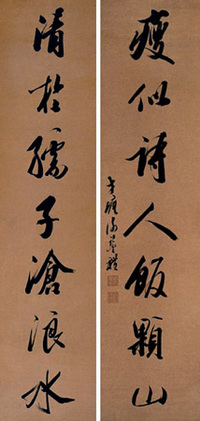 瘦似詩人飯顆山
清於孺子滄浪水